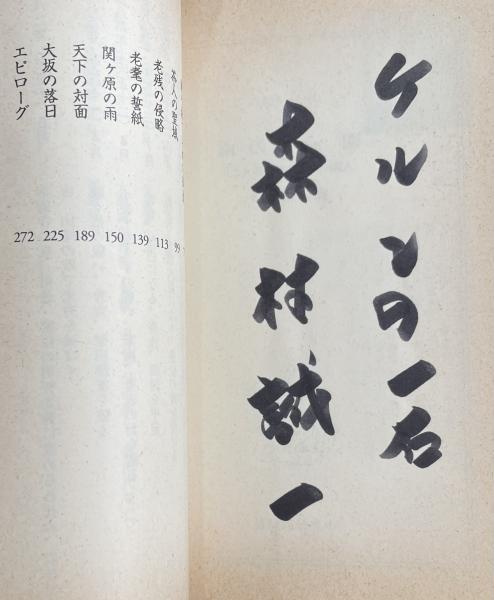 ケルンの一石
森村誠一
茶人の聖域 99
老残の侵略 113
老耄の誓紙 139
関ヶ原の雨 150
天下の対面 189
大坂の落日 225
エピローグ 272